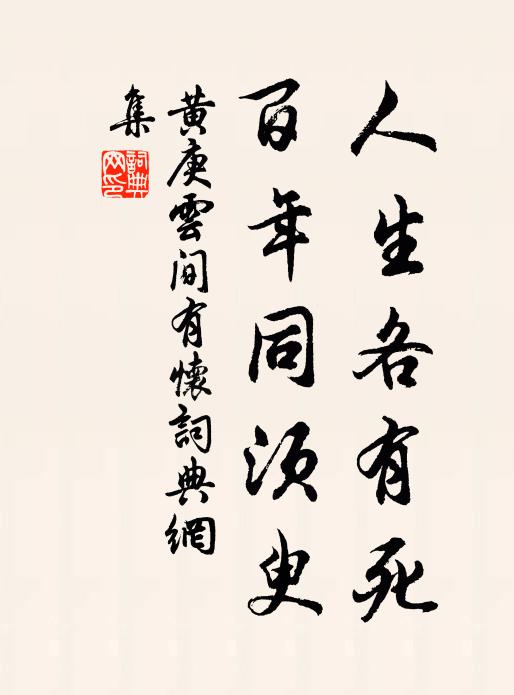 人生各有死
百年同須臾
黄庚雲间有懷詞典網
集
詞典
网印